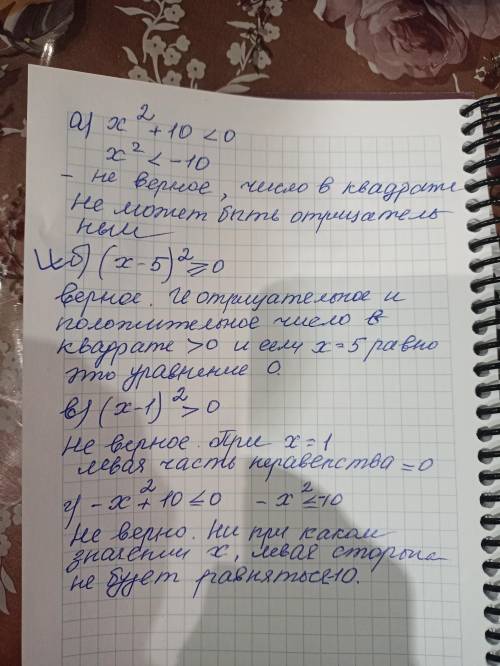 а) x² + 10 < 0
x² < -10
- не верное, число в квадрате
не может быть отрицатель
ным
б) (x - 5)² ≥ 0
верное. И отрицательное и
положительное число в
квадрате > 0 и если x = 5 равно
это уравнение 0.
в) (x - 1)² > 0
Не верное. При x = 1
левая часть неравенства = 0
г) - x² + 10 ≤ 0 - x² ≤ -10
Не верно. Ни при каком
значении x, левая сторона
не будет равняться -10.